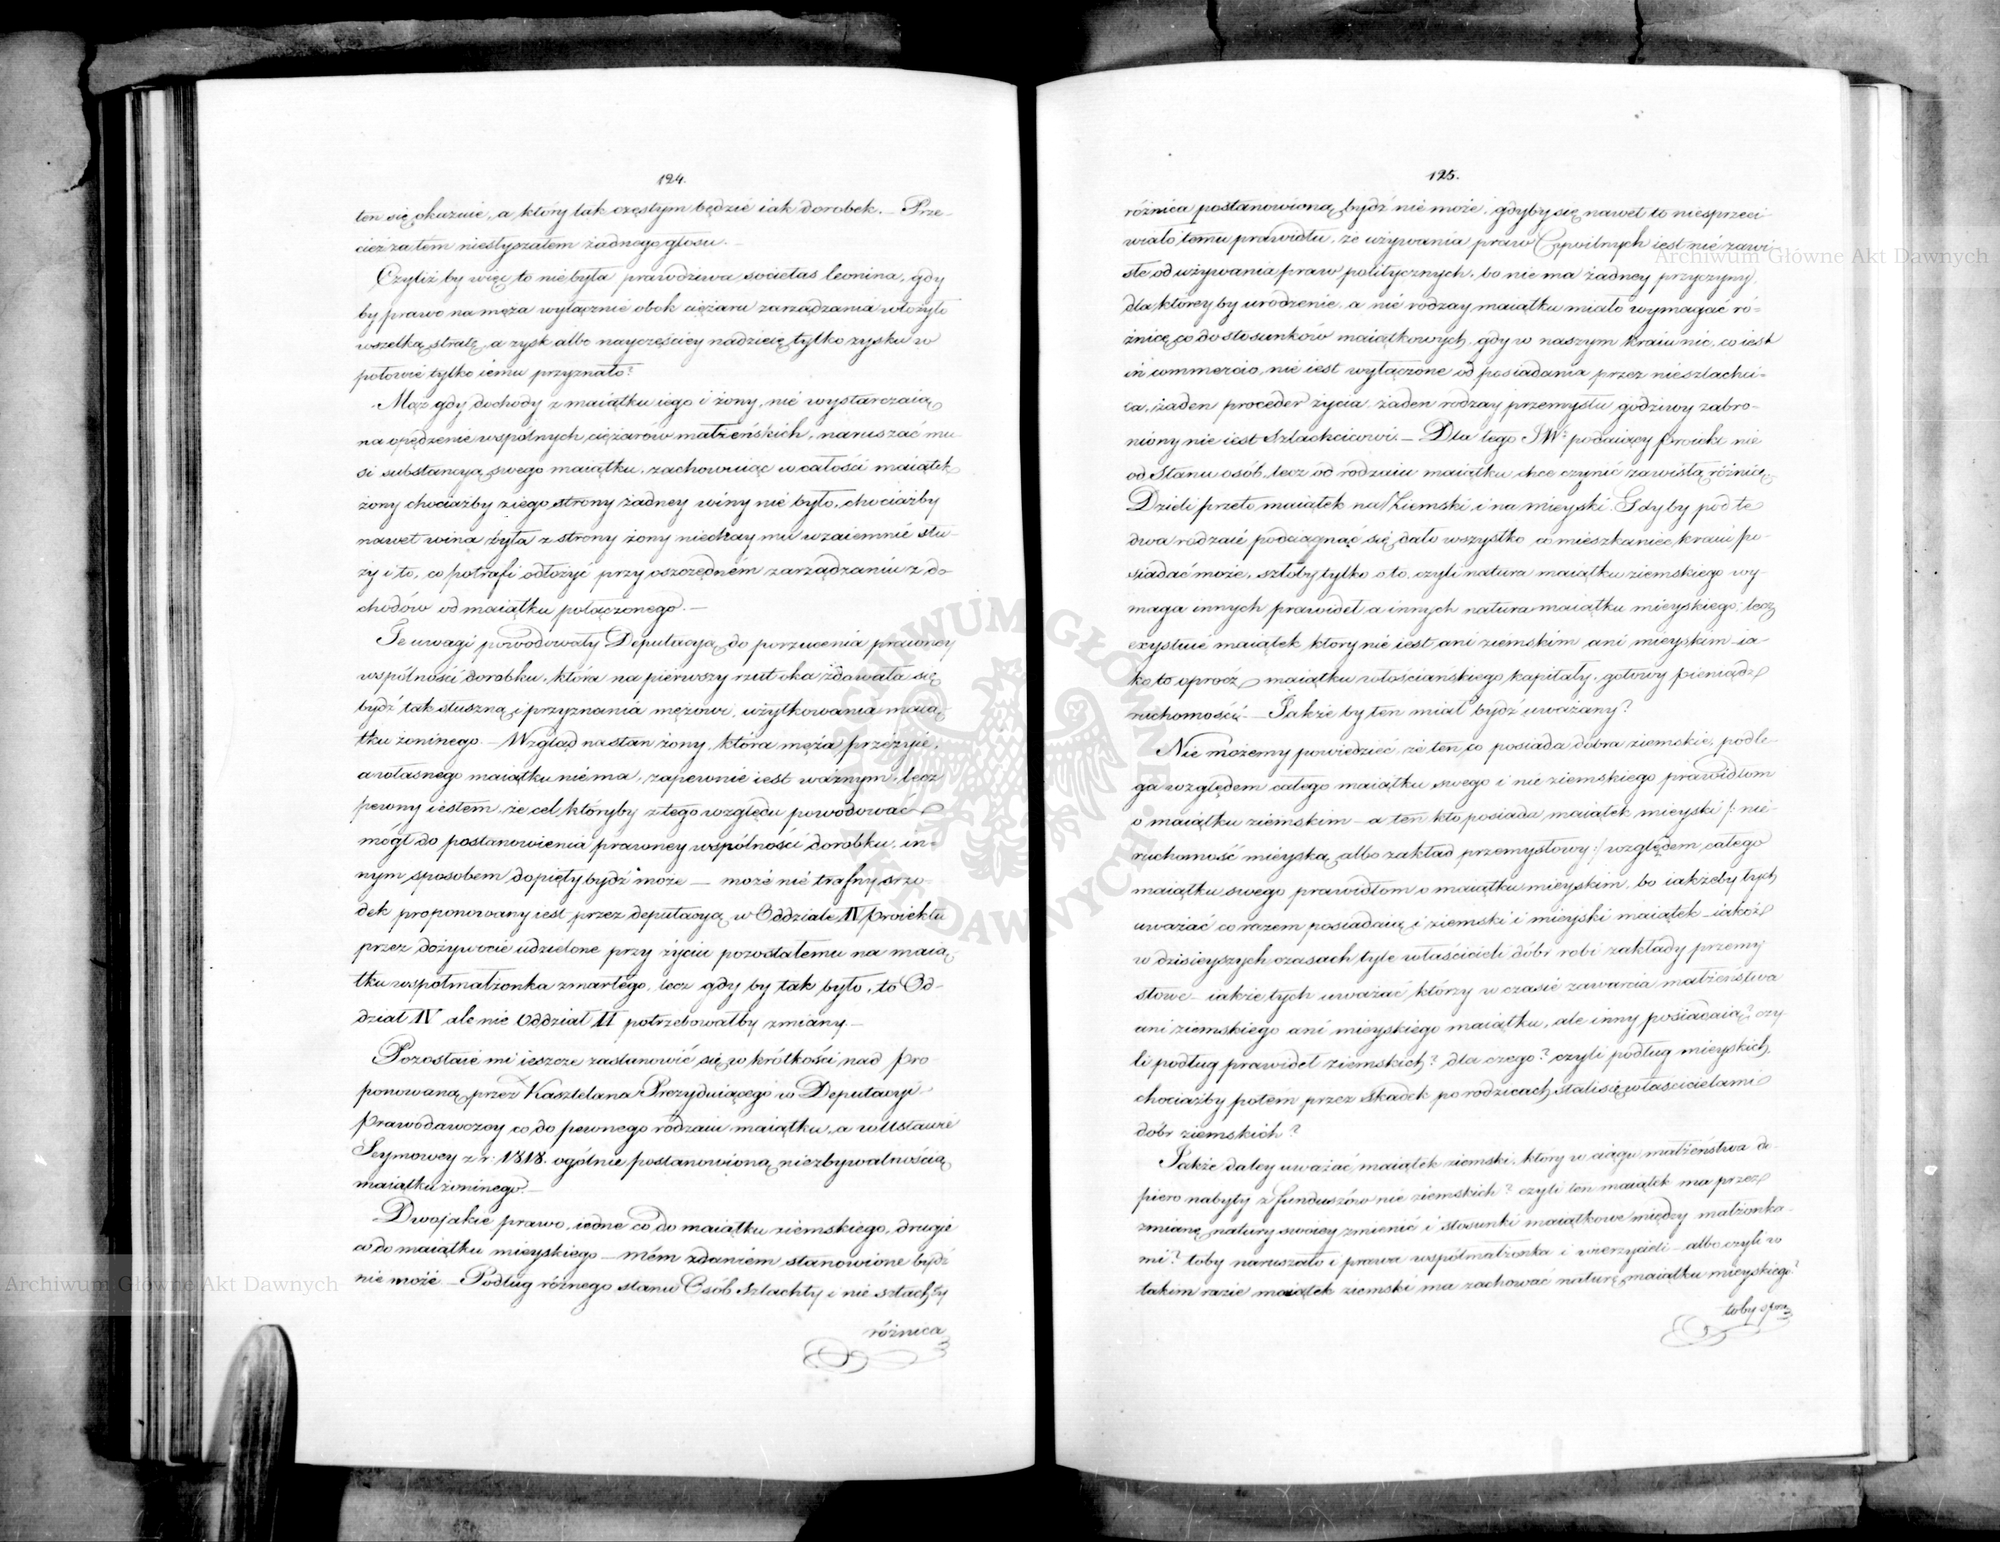 124.
ten się okazuie, a który tak częstym będzie iak dorobek. — Prze-
cież za tém niesłyszałem żadnego głosu. —
Czyliż by więc to nie była prawdziwa societas leonina, gdy
by prawo na męża wyłącznie obok ciężaru zarządzania włożyło
wszelką stratę, a zysk albo nayczęściey nadzieię tylko zysku w
połowie tylko iemu przyznało?
Mąż gdy dochody z maiątku iego i żony, nie wystarczaią
na opędzenie wspólnych ciężarów małżeńskich, naruszać mu-
si substancyą swego maiątku, zachowuiąc w całości maiątek
żony chociażby z iego strony żadney winy nie było, chociażby
nawet wina była z strony żony niechay mu wzaiemnie słu-
ży i to, co potrafi odłożyć przy oszczędném zarządzaniu z do-
chodów od maiątku połączonego. —
Te uwagi powodowały Deputacyą do porzucenia prawney
wspólności dorobku, która na pierwszy rzut oka zdawała się
bydź tak słuszną i przyznania mężowi, użytkowania maią-
tku żoninego. — Wzgląd na stan żony, która męża przeżyie,
a własnego maiątku nie ma, zapewnie iest ważnym, lecz
pewny iestem, że cel któryby z tego względu powodować
mógł do postanowienia prawney wspólności dorobku, in-
nym sposobem dopięty bydź może — może nie trafny śrzo-
dek proponowany iest przez deputacyą w Oddziale IV proiektu
przez dożywocie udzielone przy życiu pozostałemu na maią-
tku współmałżonka zmarłego, lecz gdy by tak było, to Od-
dział IV ale nie Oddział II potrzebowałby zmiany. —
Pozostaie mi ieszcze zastanowić się w krótkości nad pro-
ponowaną przez Kasztelana Prezyduiącego w Deputacyi
Prawodawczey co do pewnego rodzaiu maiątku, a w Ustawie
Seymowey z r. 1818. ogólnie postanowioną niezbywalnością
maiątku żoninego. —
Dwojakie prawo, iedne co do maiątku ziemskiego, drugie
co do maiątku mieyskiego — mém zdaniem stanowione bydź
nie może. — Podług różnego stanu Osób Szlachty i nie szlachty
różnica
125.
różnica postanowioną bydź nie może, gdyby się nawet to niesprzeci-
wiało temu prawidłu, że używania praw Cywilnych iest nie zawi-
słe od używania praw politycznych, bo nie ma żadney przyczyny,
dla którey by urodzenie, a nie rodzay maiątku miało wymagać ró-
żnicę co do stosunków maiątkowych, gdy w naszym kraiu nic, co iest
in commercio, nie iest wyłączone od posiadania przez nieszlachci-
ca, żaden proceder życia, żaden rodzay przemysłu godziwy zabro-
niony nie iest Szlachcicowi. — Dla tego JW. podaiący proiekt nie
od Stanu osób, lecz od rodzaiu maiątku chce czynić zawisłą różnicę.
Dzieli przeto maiątek na Ziemski, i na mieyski. Gdyby pod te
dwa rodzaie podciągnąć się dało wszystko co mieszkaniec kraiu po-
siadać może, szłoby tylko o to, czyli natura maiątku ziemskiego wy-
maga innych prawideł a innych natura maiątku mieyskiego; lecz
exystuie maiątek który nie iest ani ziemskim ani mieyskim ia-
ko to oprócz maiątku włościańskiego kapitały, gotowy pieniądz
ruchomości. — Jakże by ten miał bydź uważany?
Nie możemy powiedzieć że ten, co posiada dobra ziemskie, podle-
ga względem całego maiątku swego i nie ziemskiego prawidłom
o maiątku ziemskim — a ten kto posiada maiątek mieyski /: nie-
ruchomość mieyską albo zakład przemysłowy :/ względem całego
maiątku swego prawidłom o maiątku mieyskim, bo iakżeby tych
uważać co razem posiadaią i ziemski i mieyski maiątek — iakoż
w dzisieyszych czasach tyle właścicieli dóbr robi zakłady przemy-
słowe — iakże tych uważać, którzy w czasie zawarcia małżeństwa
ani ziemskiego ani mieyskiego maiątku, ale inny posiadaią? czy-
li podług prawideł ziemskich? dla czego? czyli podług mieyskich,
chociażby potém przez spadek po rodzicach stali się właścicielami
dóbr ziemskich?
Jakże daley uważać maiątek ziemski, który w ciągu małżeństwa do-
piero nabyty z funduszów nie ziemskich? czyli ten maiątek ma przez
zmianę natury swoiey zmienić i stosunki maiątkowe między małżonka-
mi? toby naruszało i prawa współmałżonka i wierzycieli — albo czyli w
takim razie maiątek ziemski ma zachować naturę maiątku mieyskiego?
toby
Archiwum Główne Akt Dawnych
Archiwum Główne Akt Dawnych
ARCHIWUM GŁÓWNE AKT DAWNYCH